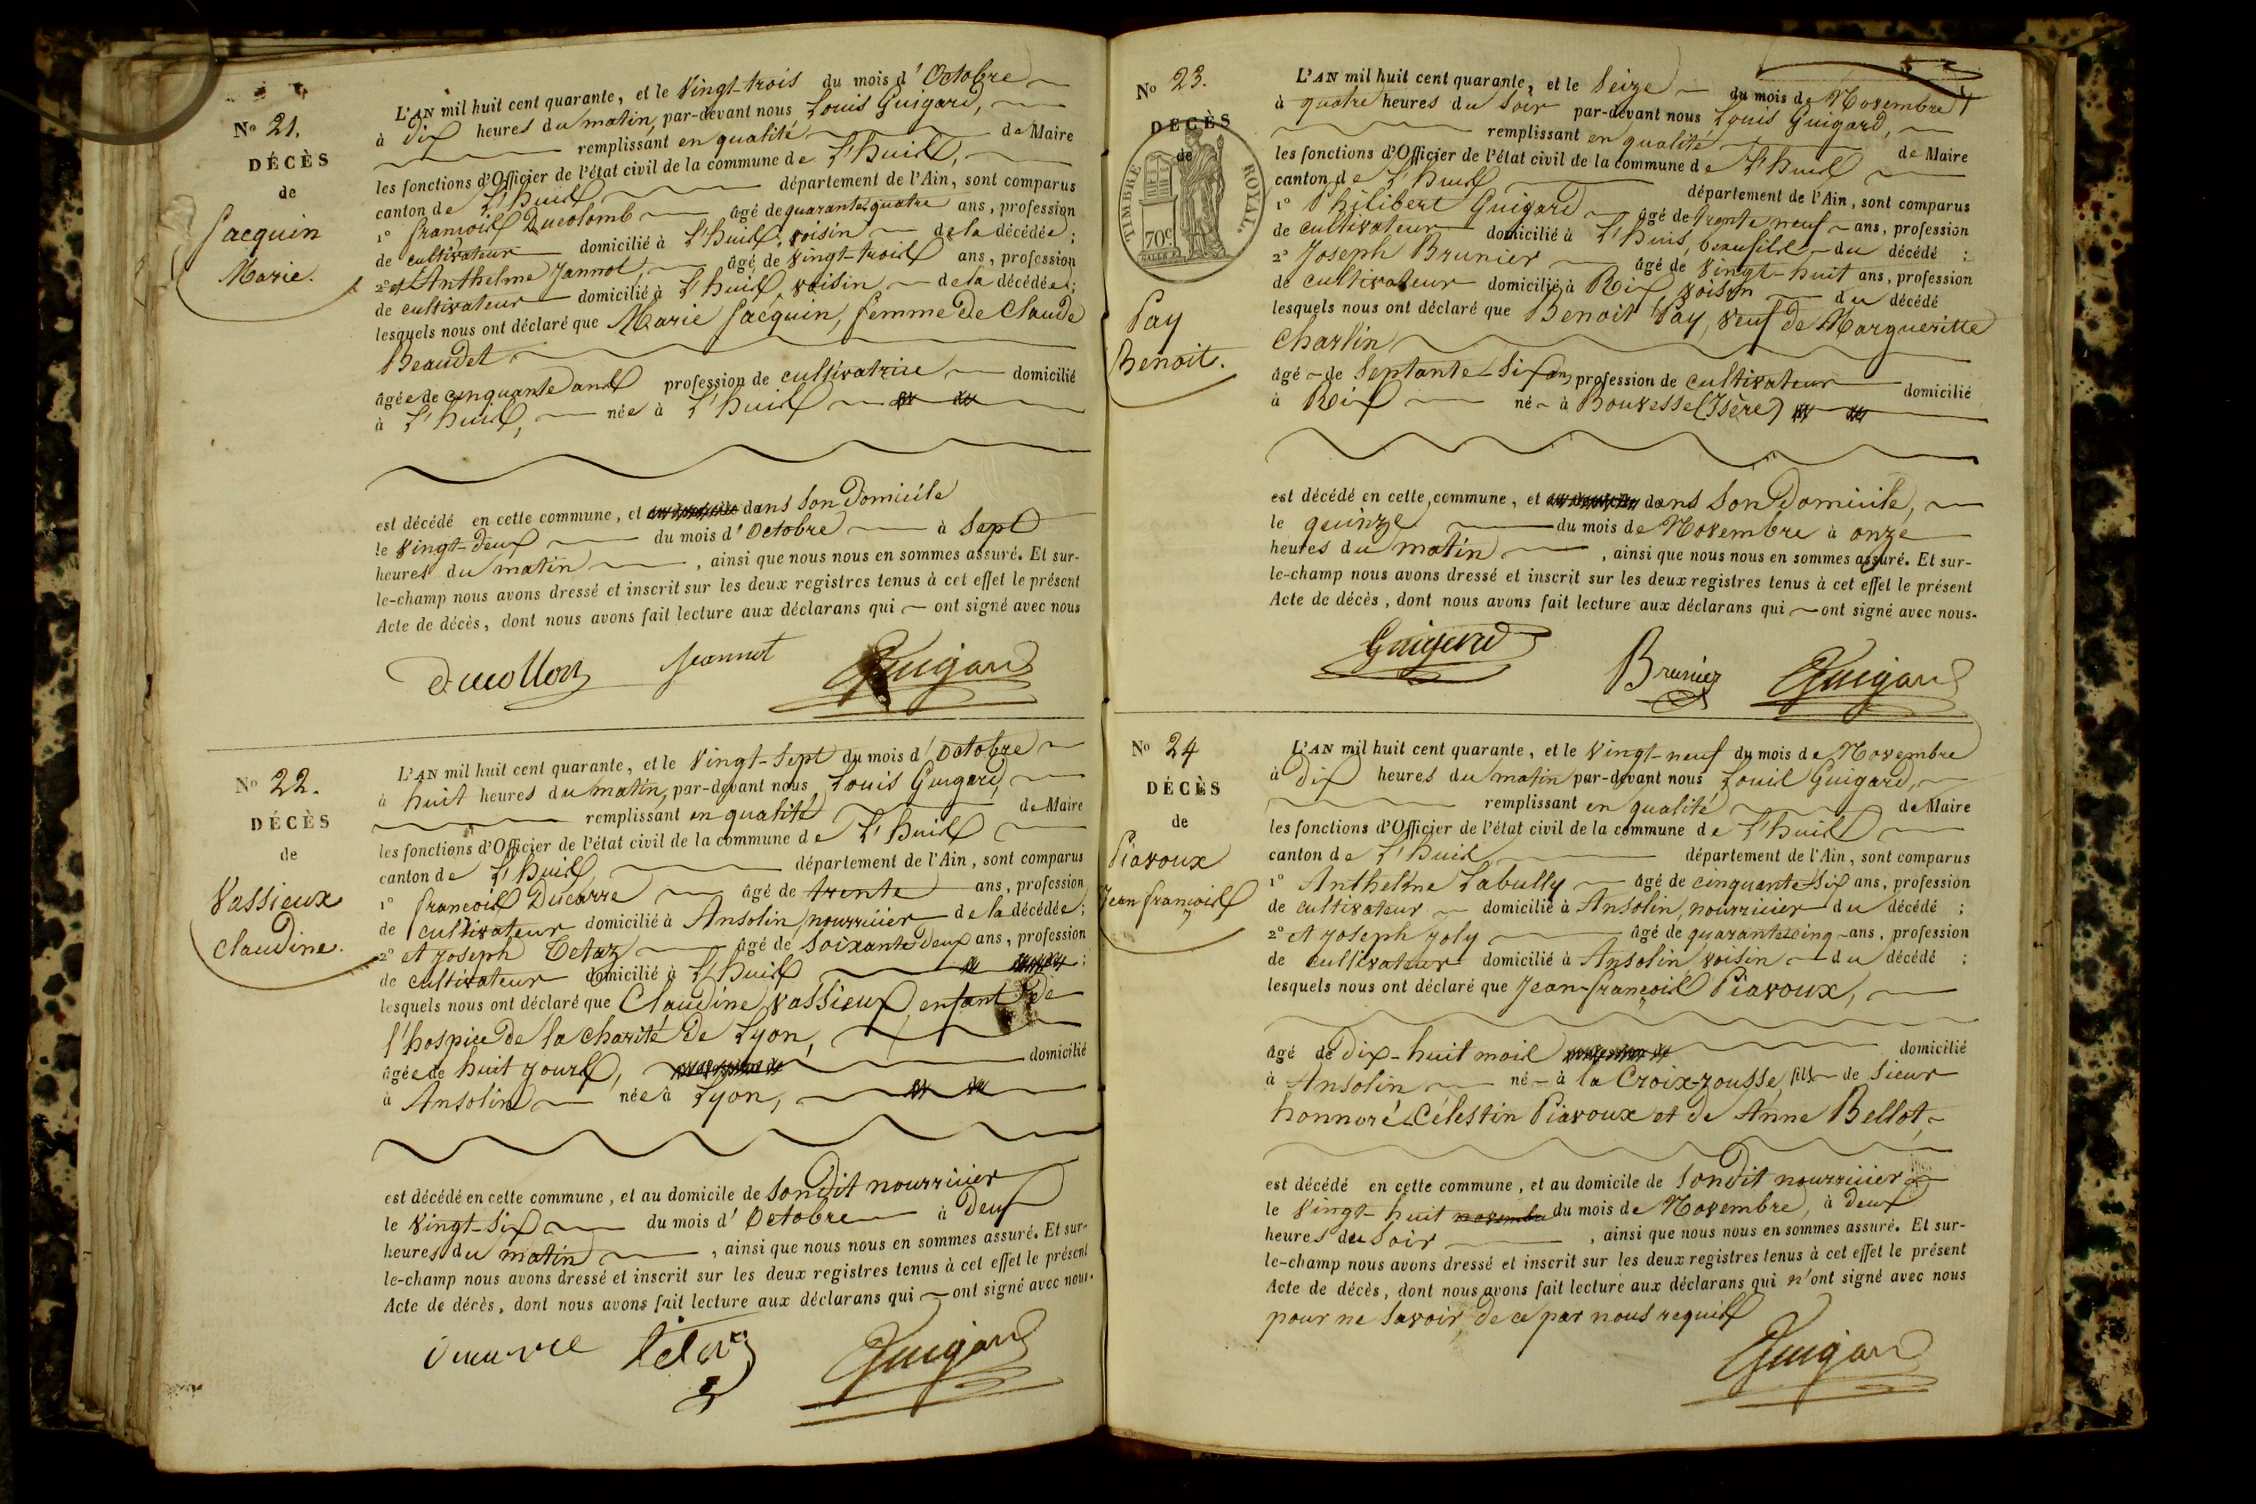 No 21.
DÉCÈS
de
Jacquin
Marie.
L'AN mil huit cent quarante, et le Vingt-trois du mois d'Octobre
à dix heures du matin, par-devant nous Louis Guigard,
remplissant en qualité de Maire
les fonctions d'Officier de l'état civil de la commune de L'huis,
canton de L'huis département de l'Ain, sont comparus
1o françois Ducolomb âgé de quarante quatre ans, profession
de cultivateur domicilié à L'huis, voisin de la décédée;
2o et Anthelme Jannot, âgé de Vingt-trois ans, profession
de cultivateur domicilié à L'huis, voisin de la décédée;
lesquels nous ont déclaré que Marie Jacquin, femme de Claude
Beaudet
âgée de cinquante ans profession de cultivatrice domicilié
à L'huis, née à L'huis
est décédé en cette commune, et dans son Domicile
le Vingt-deux du mois d'Octobre à Sept
heures du matin, ainsi que nous nous en sommes assuré. Et sur-
le-champ nous avons dressé et inscrit sur les deux registres tenus à cet effet le présent
Acte de décès, dont nous avons fait lecture aux déclarans qui ont signé avec nous
ducollon Jeannot Guigard
No 22.
DÉCÈS
de
Vassieux
Claudine.
L'AN mil huit cent quarante, et le Vingt-Sept du mois d'Octobre
à huit heures du matin, par-devant nous Louis Guigard,
remplissant en qualité de Maire
les fonctions d'Officier de l'état civil de la commune de L'huis
canton de L'huis, département de l'Ain, sont comparus
1o françois Ducarre âgé de trente ans, profession
de cultivateur domicilié à Ansolin, nourricier de la décédée;
2o et Joseph Tetaz âgé de Soixante deux ans, profession
de cultivateur domicilié à L'huis ;
lesquels nous ont déclaré que Claudine Vassieux, enfant de
l'hospice de la charité de Lyon,
âgée de huit jours, domicilié
à Ansolin née à Lyon,
est décédé en cette commune, et au domicile de Son dit nourricier
le Vingt-Six du mois d'Octobre à Deux
heures du matin, ainsi que nous nous en sommes assuré. Et sur-
le-champ nous avons dressé et inscrit sur les deux registres tenus à cet effet le présent
Acte de décès, dont nous avons fait lecture aux déclarans qui ont signé avec nous.
Guigard
No 23.
DÉCÈS
de
TIMBRE ROYAL.
70c
Pay
Benoit.
L'AN mil huit cent quarante, et le Seize du mois de Novembre
à quatre heures du Soir par-devant nous Louis Guigard,
remplissant en qualité de Maire
les fonctions d'Officier de l'état civil de la commune de L'huis
canton de L'huis département de l'Ain, sont comparus
1o Philibert Guigard âgé de trente neuf ans, profession
de cultivateur domicilié à L'huis, beaufils du décédé ;
2o Joseph Brunier âgé de Vingt-huit ans, profession
de cultivateur domicilié à Rix voisin du décédé
lesquels nous ont déclaré que Benoit Pay, veuf de Margueritte
Charlin
âgé de Septante-Six ans profession de cultivateur domicilié
à Rix né à Bouvesse (Isère)
est décédé en cette commune, et dans Son Domicile,
le quinze du mois de Novembre à onze
heures du matin, ainsi que nous nous en sommes assuré. Et sur-
le-champ nous avons dressé et inscrit sur les deux registres tenus à cet effet le présent
Acte de décès, dont nous avons fait lecture aux déclarans qui ont signé avec nous.
Guigard Brunier Guigard
No 24
DÉCÈS
de
Piavoux
Jean françois
L'AN mil huit cent quarante, et le Vingt-neuf du mois de Novembre
à dix heures du matin par-devant nous Louis Guigard,
remplissant en qualité de Maire
les fonctions d'Officier de l'état civil de la commune de L'huis
canton de L'huis département de l'Ain, sont comparus
1o Anthelme Labully âgé de cinquante-Six ans, profession
de cultivateur domicilié à Ansolin, nourricier du décédé ;
2o et Joseph Joly âgé de quarante-cinq ans, profession
de cultivateur domicilié à Ansolin voisin du décédé ;
lesquels nous ont déclaré que Jean-françois Piavoux,
âgé de dix-huit mois domicilié
à Ansolin né à la Croix-rousse, fils de Sieur
honnoré Célestin Piavoux et de Anne Bellot,
est décédé en cette commune, et au domicile de Son dit nourricier
le Vingt-huit novembre du mois de Novembre, à deux
heures du Soir, ainsi que nous nous en sommes assuré. Et sur-
le-champ nous avons dressé et inscrit sur les deux registres tenus à cet effet le présent
Acte de décès, dont nous avons fait lecture aux déclarans qui n'ont signé avec nous
pour ne Savoir, de ce par nous requis
Guigard